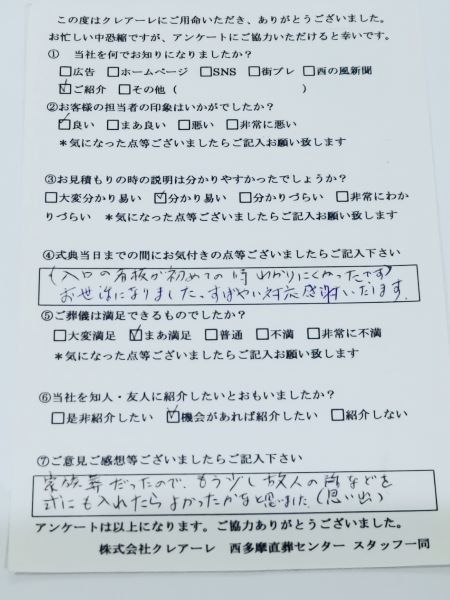 この度はクレアーレにご用命いただき、ありがとうございました。
お忙しい中恐縮ですが、アンケートにご協力いただけると幸いです。
① 当社を何でお知りになりましたか？
□広告 □ホームページ □SNS □街プレ □西の風新聞
☑ご紹介 □その他（ ）
②お客様の担当者の印象はいかがでしたか？
☑良い □まあ良い □悪い □非常に悪い
＊気になった点等ございましたらご記入お願い致します
③お見積もりの時の説明は分かりやすかったでしょうか？
□大変分かり易い ☑分かり易い □分かりづらい □非常にわか
りづらい ＊気になった点等ございましたらご記入お願い致します
④式典当日までの間にお気付きの点等ございましたらご記入下さい
(入口の看板が初めての時わかりにくかったです)
お世話になりました。すばやい対応感謝いたします。
⑤ご葬儀は満足できるものでしたか？
□大変満足 ☑まあ満足 □普通 □不満 □非常に不満
＊気になった点等ございましたらご記入お願い致します
⑥当社を知人・友人に紹介したいとおもいましたか？
□是非紹介したい ☑機会があれば紹介したい □紹介しない
⑦ご意見ご感想等ございましたらご記入下さい
家族葬だったので、もう少し故人の などを
式にも入れたらよかったかなと思いました。(思い出)
アンケートは以上になります。ご協力ありがとうございました。
株式会社クレアーレ 西多摩直葬センター スタッフ一同